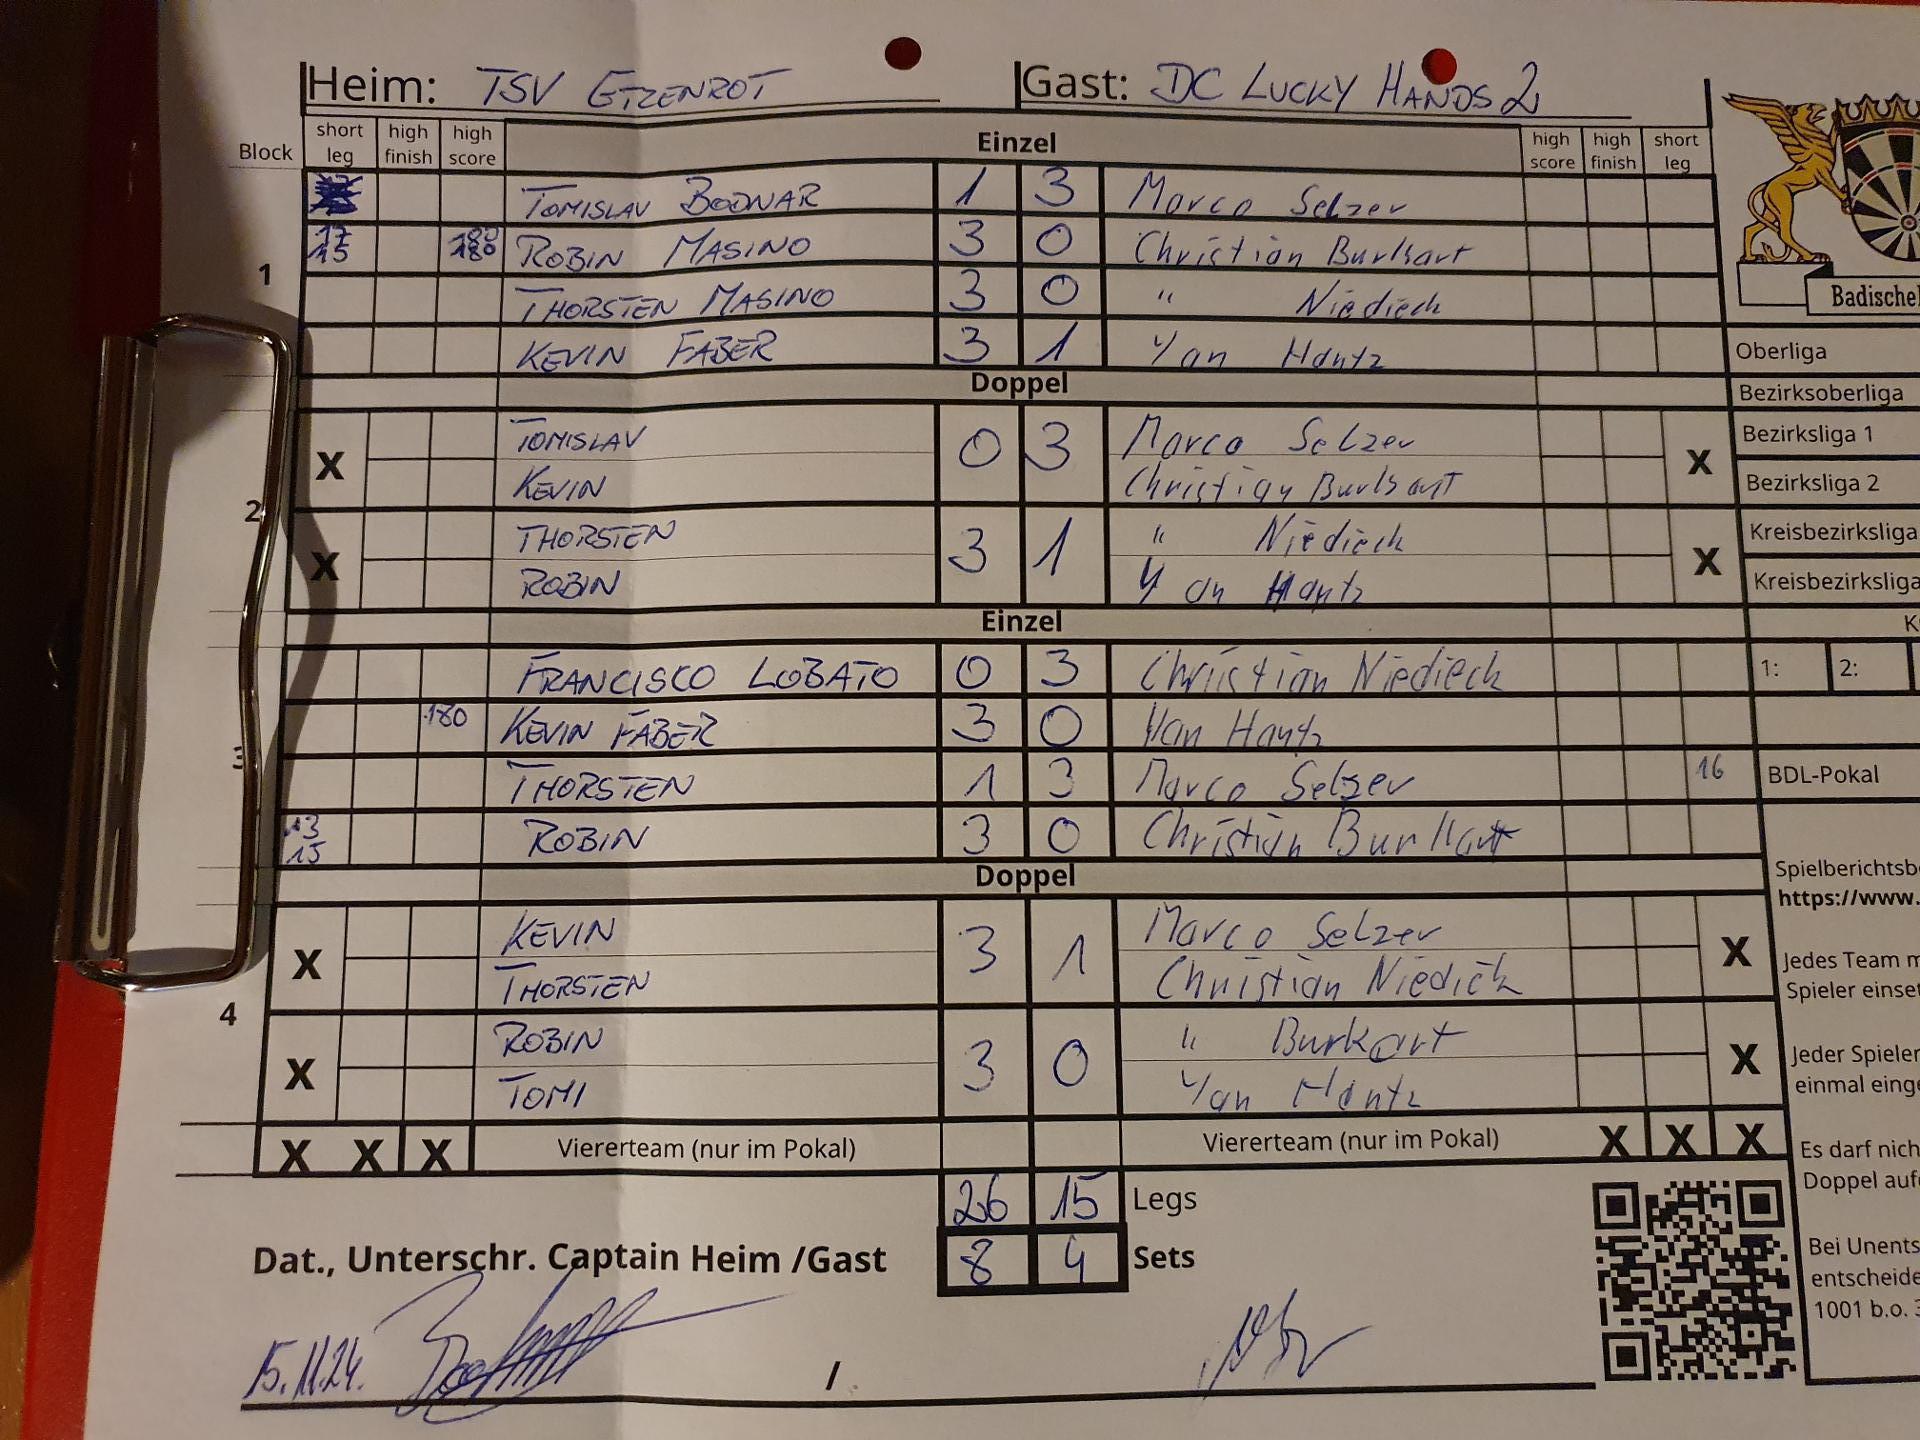 Heim: TSV ETZENROT Gast: DC LUCKY HANDS 2
Block short leg high finish high score Einzel high score high finish short leg
TOMISLAV BODNAR 1 3 Marco Selzer
1 17 15 180 180 ROBIN MASINO 3 0 Christian Burkart
THORSTEN MASINO 3 0 " Niedieck
KEVIN FABER 3 1 Yan Hantz
Doppel
X TOMISLAV 0 3 Marco Selzer X
KEVIN Christian Burkart
2
X THORSTEN 3 1 " Niedieck X
ROBIN Yan Hantz
Einzel
FRANCISCO LOBATO 0 3 Christian Niedieck
180 KEVIN FABER 3 0 Yan Hantz
3 THORSTEN 1 3 Marco Selzer 16
13 15 ROBIN 3 0 Christian Burkart
Doppel
X KEVIN 3 1 Marco Selzer X
THORSTEN Christian Niedick
4
X ROBIN 3 0 " Burkart X
TOMI Yan Hantz
X X X Viererteam (nur im Pokal) Viererteam (nur im Pokal) X X X
26 15 Legs
Dat., Unterschr. Captain Heim /Gast 8 4 Sets
15.11.24. /
Badische
Oberliga
Bezirksoberliga
Bezirksliga 1
Bezirksliga 2
Kreisbezirksliga
Kreisbezirksliga
1: 2:
BDL-Pokal
Spielberichtsb
https://www.
Jedes Team m
Spieler einset
Jeder Spieler
einmal einge
Es darf nich
Doppel aufg
Bei Unents
entscheide
1001 b.o. 3